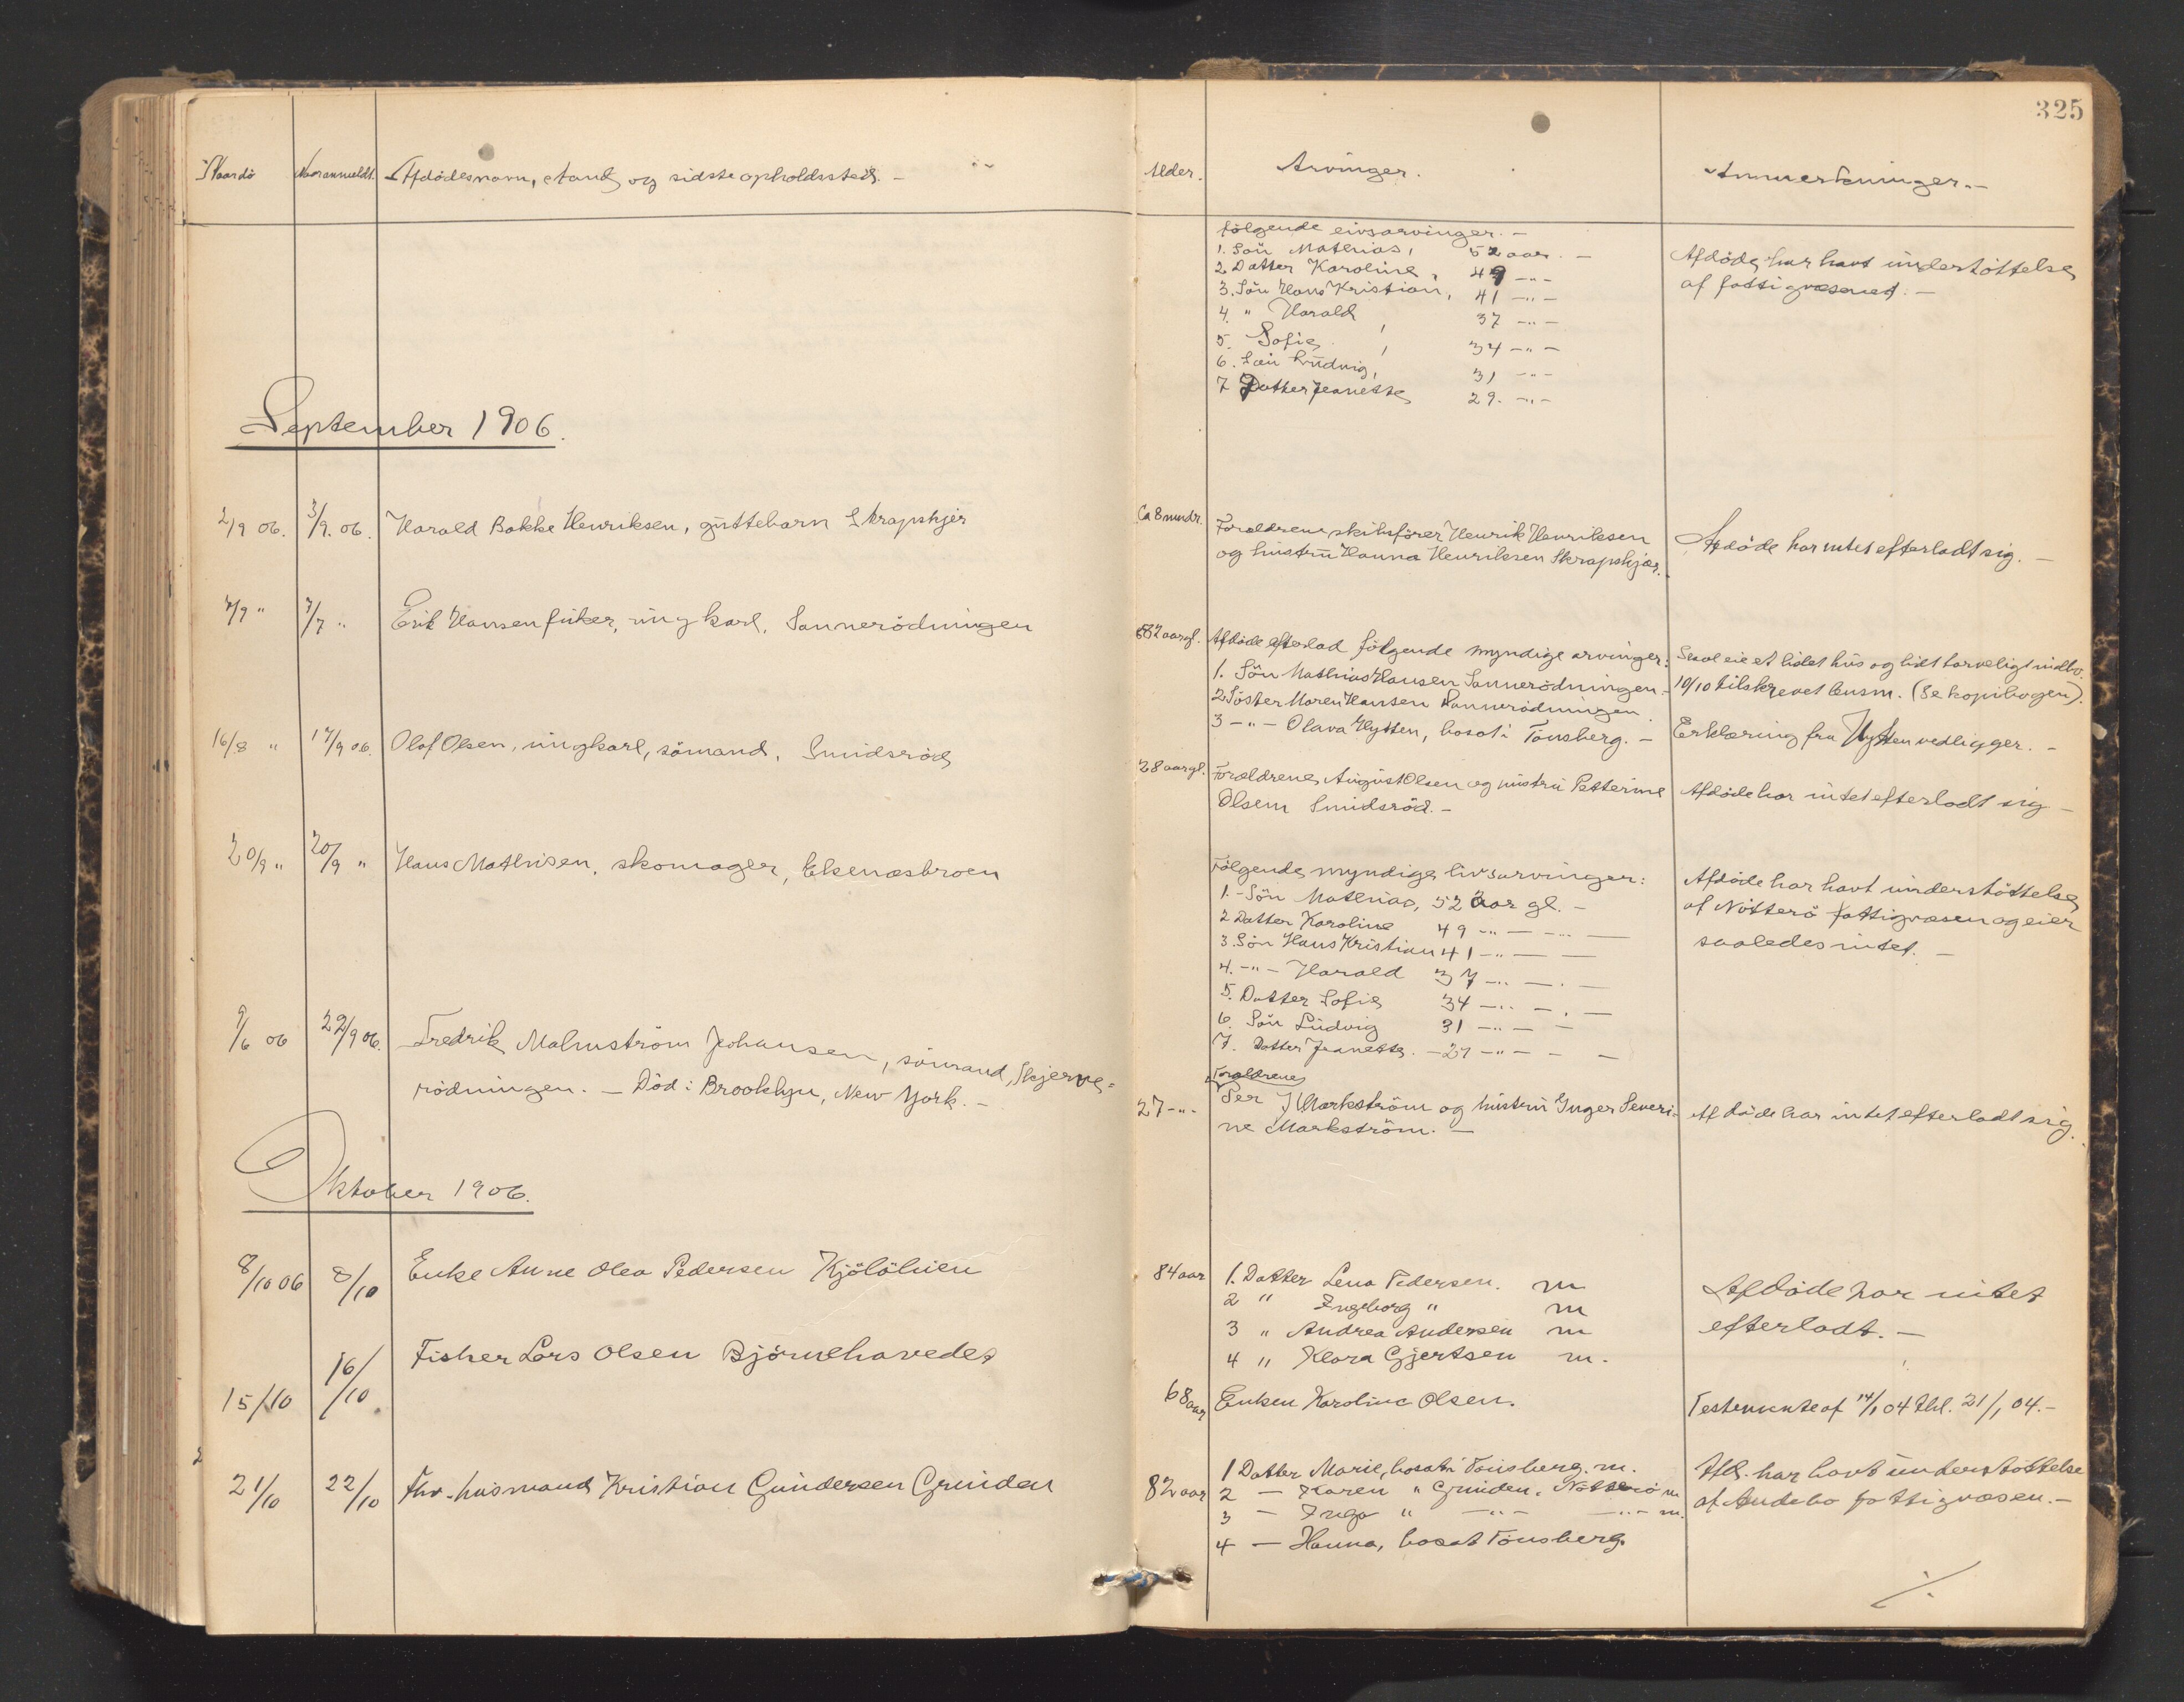 325
Naar död Naar anmeldt. Afdödes navn, stand og sidste opholdssted. -
Alder. Arvinger. Anmerkninger. -
følgende livsarvinger. -
1. Sön Mathias, 52 aar. -
2. Datter Karoline, 49 -"-
3. Sön Hans Kristian, 41 -"-
4. " Harald, 37 -"-
5. Sofie, 34 -"-
6. Sön Ludvig, 31 -"-
7 Datter Jeanette 29. -"-
Afdöde har havt understöttelse
af fattigvæsenet. -
September 1906.
2/9 06. 3/9. 06. Harald Bakke Henriksen, guttebarn Skrapskjer
Ca 8 mndr.
Foraldrene skibsförer Henrik Henriksen
og hustru Hanna Henriksen Skrapskjær.
Afdöde har intet efterladt sig. -
7/9 " 7/7 " Erik Hansen fisker, ungkarl, Sannerödningen
82 aar gl.
Afdöde efterlod følgende myndige arvinger:
1. Sön Mathias Hansen Sannerödningen -
2. Söster Maren Hansen Sannerödningen.
3 -"- Olava Hytten, bosat i Tönsberg. -
Skal eie et lidet hus og lidt tarveligt indbo.
10/10 tilskrevet lensm. (Se kopibogen).
Erklæring fra Hytten vedligger. -
16/8 " 17/9 06. Olaf Olsen, ungkarl, sömand, Smidsröd
28 aar gl.
Foraldrene August Olsen og hustru Petterine
Olsen Smidsröd. -
Afdöde har intet efterladt sig -
20/9 " 20/9 " Hans Mathisen, skomager, Ekenæsbroen
Følgende myndige livsarvinger:
1. - Sön Mathias, 52 aar gl. -
2 Datter Karoline 49 -"- -
3. Sön Hans Kristian 41 -"- -
4. -"- Harald 37 -"- -
5. Datter Sofie 34 -"- -
6. Sön Ludvig 31 -"- -
7. Datter Jeanette. - 29 -"- -
Afdöde har havt understöttelse
af Nötterö fattigvæsen og eier
saaledes intet. -
9/6 06 22/9 06. Fredrik Malmström Johansen, sömand, Skjerve=
rödningen. - Död i Brooklyn, New York. -
27 -"-
Foraldrene
Per J Markström og hustru Inger Severi-
ne Markström. -
Afdöde har intet efterladt sig.
Oktober 1906.
8/10 06 8/10 Enke Anne Olea Pedersen Kjölölien
84 aar
1. Datter Lena Pedersen. m
2 " Ingeborg " m
3 " Andrea Andersen m
4 " Klara Gjertsen m.
Afdöde har intet
efterladt. -
15/10 16/10 Fisker Lars Olsen Björnehovedet
68 aar Enken Karoline Olsen.
Testamente af 14/1 04 thl. 21/1 04. -
21/10 22/10 Fhv. husmand Kristian Gundersen Grinden
82 aar
1 Datter Marie, bosat i Tönsberg. m.
2 - Karen " Grinden. Nötterö m
3 - Inga " -"- -"- m.
4 - Hanna, bosat Tönsberg.
Afd. har havt understöttelse
af Andebo fattigvæsen. -
./.